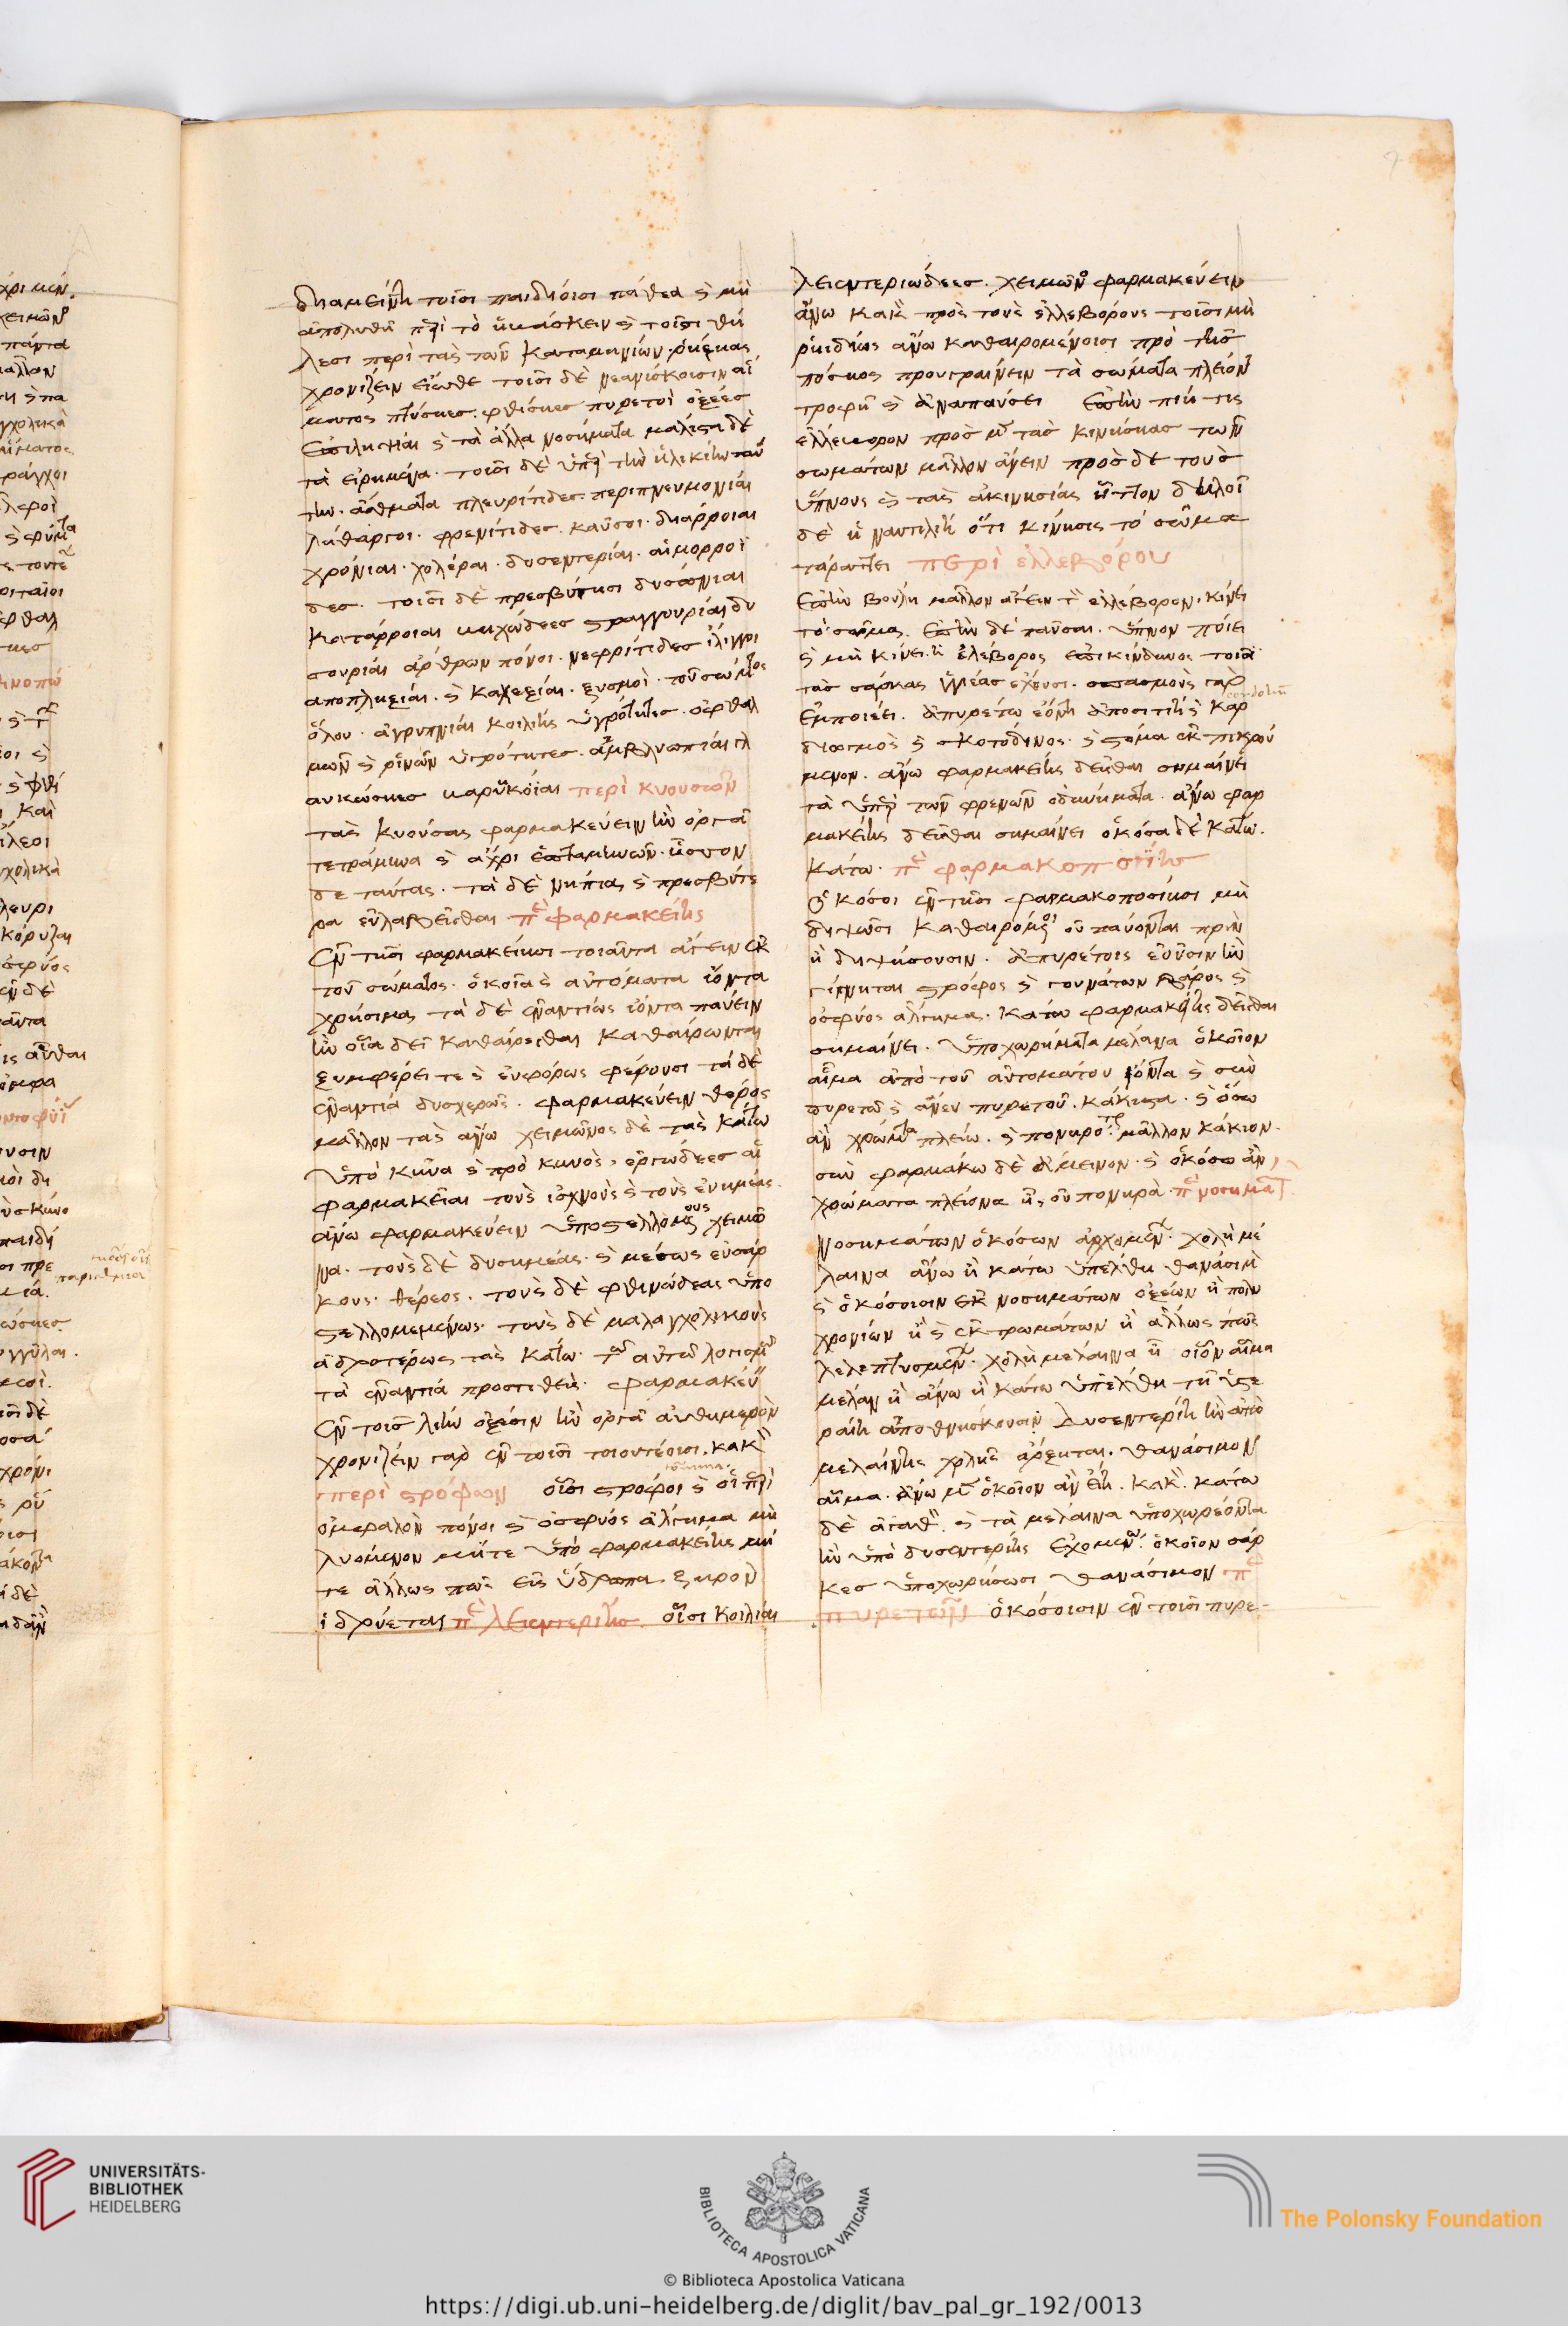 διαμείνῃ τοῖσι παιδίοισι πάθεα ϗ μὴ
ἀπολυθῆ περὶ τὸ ἡβάσκειν ϗ τοῖσι θή
λεσι περὶ τὰς τῶν καταμηνίων ῥήξηας
χρονίζειν εἴωθε τοῖσι δὲ νεανίσκοισιν αἵ
ματος πτύσηες. φθίσηες πυρετοὶ ὀξέες
ἐπιληψίαι ϗ τὰ ἄλλα νοσήματα μάλιστα δὲ
τὰ εἰρημένα. τοῖσι δὲ ὑπὲρ τὴν ἡλικίην ταύ
την. ἄσθματα πλευρίτιδες. περιπνευμονίαι
λήθαργοι. φρενίτιδες. καῦσοι. διάρροιαι
χρόνιαι. χολέραι. δυσεντερίαι. αἱμορροΐ
δες. τοῖσι δὲ πρεσβύτησι δυσπνίαι
κατάρροιαι βηχώδεες στραγγουρίαι δυ
σουρίαι ἄρθρων πόνοι. νεφρίτιδες ἴλιγγοι
ἀποπληξίαι. ϗ καχεξίαι. ξυσμοὶ. τοῦ σώματος
ὅλου. ἀγρυπνίαι κοιλίης ὑγρότητες. ὀφθαλ
μῶν ϗ ῥινῶν ὑγρότητες. ἀμβλυωπίαι γλ
αυκώσηες βαρυηκοΐαι περὶ κυουσῶν
τὰς κυούσας φαρμακεύειν ἢν ὀργᾶ
τετράμηνα ϗ ἄχρι ἑπταμήνων. ἧσσον
δε ταύτας. τὰ δὲ νήπια ϗ πρεσβύτε
ρα εὐλαβεῖσθαι πὲ φαρμακείης
ἐν τῆσι φαρμακείησι τοιαῦτα ἄγειν ἐκ
τοῦ σώματος. ὁκοῖα ϗ αὐτόματα ἰόντα
χρήσιμα τὰ δὲ ἐναντίως ἰόντα παύειν
ἢν οἷα δεῖ καθαίρεσθαι καθαίρωνται
ξυμφέρει τε ϗ εὐφόρως φέρουσι τὰ δὲ
ἐναντία δυσχερῶς. φαρμακεύειν θέρος
μᾶλλον τὰς ἄνω χειμῶνος δὲ τὰς κάτω
ὑπὸ κύνα ϗ πρὸ κυνὸς, ἐργώδεες αἱ
φαρμακεῖαι τοὺς ἰσχνοὺς ϗ τοὺς εὐημέας
ἄνω φαρμακεύειν ὑποστελλομένους χειμῶ
να. τοὺς δὲ δυσημέας. ϗ μέσως εὐσάρ
κους. θέρεος. τοὺς δὲ φθινώδεας ὑπο
στελλομεμένως. τοὺς δὲ μελαγχολικοὺς
ἁδροτέρως τὰς κάτω. τῶ αὐτῶ λογισμῶ
τὰ ἐναντία προστιθεὶς. φαρμακεύ
ἐν τοῖς λίην ὀξέσιν ἢν ὀργᾶ αὐθημερὸν
χρονίζειν γαρ ἐν τοῖσι τοιουτέοισι. κακὸν
περὶ στρόφων οἷσι στρόφοι ϗ οἱ περὶ
ὀμφαλὸν πόνοι ϗ ὀσφύος ἄλγημα μὴ
λυόμενον μήτε ὑπὸ φαρμακείης μή
τε ἄλλως πως εἰς ὕδρωπα ξηρὸν
ἱδρύεται πὲ λειεντερίης οἷσι κοιλίαι
λειεντεριώδεες. χειμῶνος φαρμακεύειν
ἄνω κακὸν πρὸς τοὺς ἐλλεβόρους τοῖσι μὴ
ῥηιδίως ἄνω καθαιρομένοισι πρὸ τῆς
πόσηος προυγραίνειν τὰ σώματα πλείονι
τροφῆ ϗ ἀναπαύσει ἐπὴν πίη τις
ἐλλέβορον πρὸς μὲν τὰς κινήσηας τῶν
σωμάτων μᾶλλον ἄγειν πρὸς δὲ τοὺς
ὕπνους ϗ τὰς ἀκινησίας ἧττον δηλοῖ
δὲ ἡ ναυτιλίη ὅτι κίνησις τὸ σῶμα
ταράττει περὶ ἐλλεβόρου
ἐπὴν βούλη μᾶλλον ἄγειν τὸν ἐλλέβορον, κίνει
τὸ σῶμα. ἐπὴν δὲ παῦσαι. ὕπνον ποίει
ϗ μὴ κίνει. ἐλέβορος ἐπικίνδυνος τοῖσι
τὰς σάρκας ὑγιέας ἔχουσι. σπασμοὺς γαρ
ἐμποιέει. ἀπυρέτω ἐόντι ἀποσιτίη ϗ καρ
διωγμὸς ϗ σκοτόδινος. ϗ στόμα ἐκπικρού
μενον. ἄνω φαρμακείης δεῖσθαι σημαίνει
τὰ ὑπὲρ τῶν φρενῶν ὀδυνήματα. ἄνω φαρ
μακείης δεῖσθαι σημαίνει ὁκόσα δὲ κάτω.
κάτω. πὲ φαρμακοποσίης
ὁκόσοι ἐν τῆσι φαρμακοποσίησι μὴ
διψῶσι καθαιρόμενοι οὐ παύονται πρὶν
ἢ διψήσουσιν. ἀπυρέτοις ἐοῦσιν ἢν
γίνηται στρόφος ϗ γουνάτων βάρος ϗ
ὀσφύος ἄλγημα. κάτω φαρμακίης δεῖσθαι
σημαίνει. ὑποχωρήματα μέλανα ὁκοῖον
αἷμα ἀπὸ τοῦ αὐτομάτου ἰόντα ϗ σὺν
πυρετῶ ϗ ἄνευ πυρετοῦ. κάκιστα. ϗ ὅσω
ἂν χρώματα πλείω. ϗ πονηρότερα μᾶλλον κάκιον.
σὺν φαρμάκω δὲ ἄμεινον. ϗ ὁκόσω ἂν
χρώματα πλείονα ᾖ, οὐ πονηρὰ. πὲ νοσημάτ
νοσημάτων ὁκόσων ἀρχομένων. χολὴ μέ
λαινα ἄνω ἢ κάτω ὑπέλθη θανάσιμον
ϗ ὁκόσοισιν ἐκ νοσημάτων ὀξέων ἢ πολυ
χρονίων ἢ ϗ ἐκ τρωμάτων ἢ ἄλλως πως
λελεπτυσμένων. χολὴ μέλαινα ἢ οἷον αἷμα
μέλαν ἢ ἄνω ἢ κάτω ὑπέλθη τῆ ὑστε
ραίη ἀποθνήσκουσιν. Δυσεντερίη ἢν ἀπὸ
μελαίνης χολῆς ἄρξηται. θανάσιμον
αἷμα. ἄνω μὲν ὁκοῖον ἂν ἔη. κακὸν. κάτω
δὲ ἀγαθὸν. ϗ τὰ μέλαινα ὑποχωρέοντα
ἢν ὑπὸ δυσεντερίης ἐχομένω. ὁκοῖον σάρ
κες ὑποχωρήσωσι θανάσιμον πὲ
πυρετῶν ὁκόσοισιν ἐν τοῖσι πυρε-
UNIVERSITÄTS-
BIBLIOTHEK
HEIDELBERG
BIBLIOTECA APOSTOLICA VATICANA
The Polonsky Foundation
© Biblioteca Apostolica Vaticana
https://digi.ub.uni-heidelberg.de/diglit/bav_pal_gr_192/0013